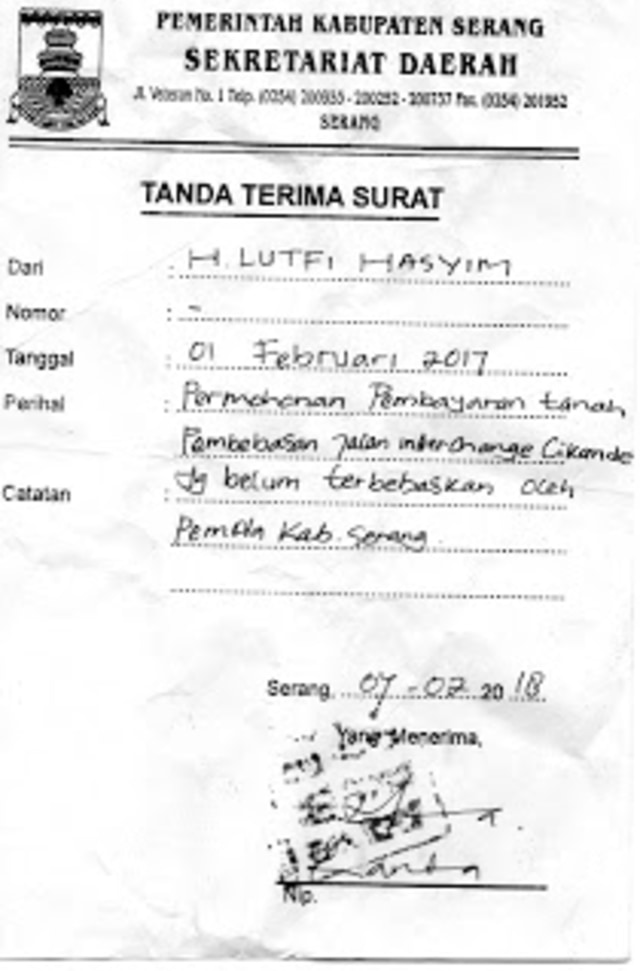 PEMERINTAH KABUPATEN SERANG
SEKRETARIAT DAERAH
Jl. Veteran No. 1 Telp. (0254) 200252 - Fax. (0254) 201952
SERANG
TANDA TERIMA SURAT
Dari : H. LUTFI HASYIM
Nomor : -
Tanggal : 01 Februari 2017
Perihal : Permohonan Pembayaran tanah
Pembebasan jalan interchange Cikande
Catatan : yg belum terbebaskan oleh
Pemda Kab. Serang
Serang, 07 - 02 20 18
Yang Menerima,
Nip.